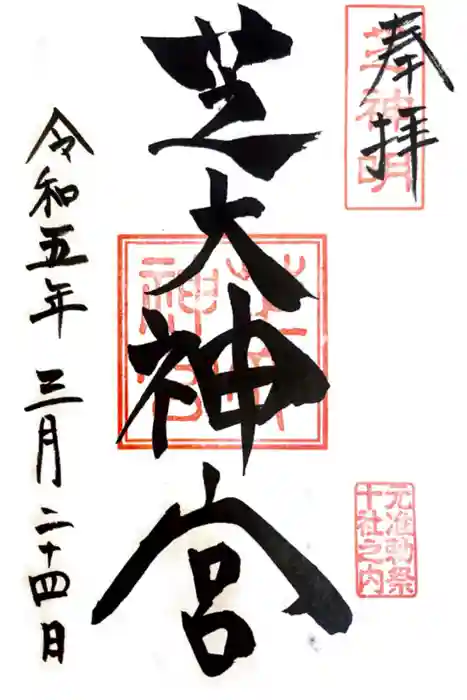 奉拝
芝神明
芝大神宮
元准勅祭
十社之内
令和五年 三月 二十四日